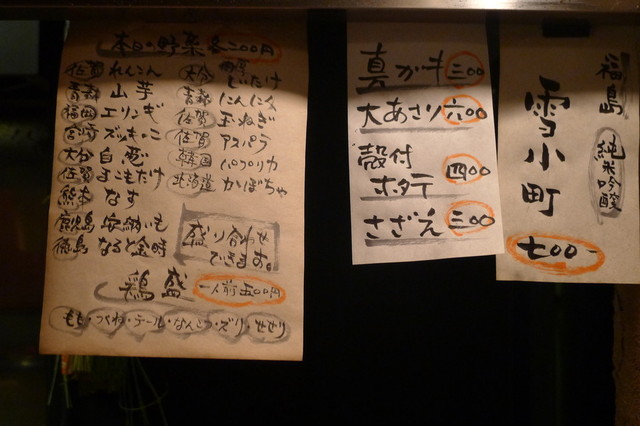 本日の野菜 各二〇〇円
佐賀 れんこん
青森 山芋
福岡 エリンギ
宮崎 ズッキーニ
大分 白葱
佐賀 まこもだけ
熊本 なす
鹿児島 安納いも
徳島 なると金時
大分 肉厚しいたけ
青森 にんにく
佐賀 玉ねぎ
佐賀 アスパラ
韓国 パプリカ
北海道 かぼちゃ
盛り合わせ
できます。
鶏盛 一人前五〇〇円
もも・つくね・テール・なんこつ・ズリ・せせり
真ガキ 三〇〇
大あさり 六〇〇
殻付
ホタテ 四〇〇
さざえ 三〇〇
福島 純米吟醸
雪小町
七〇〇-